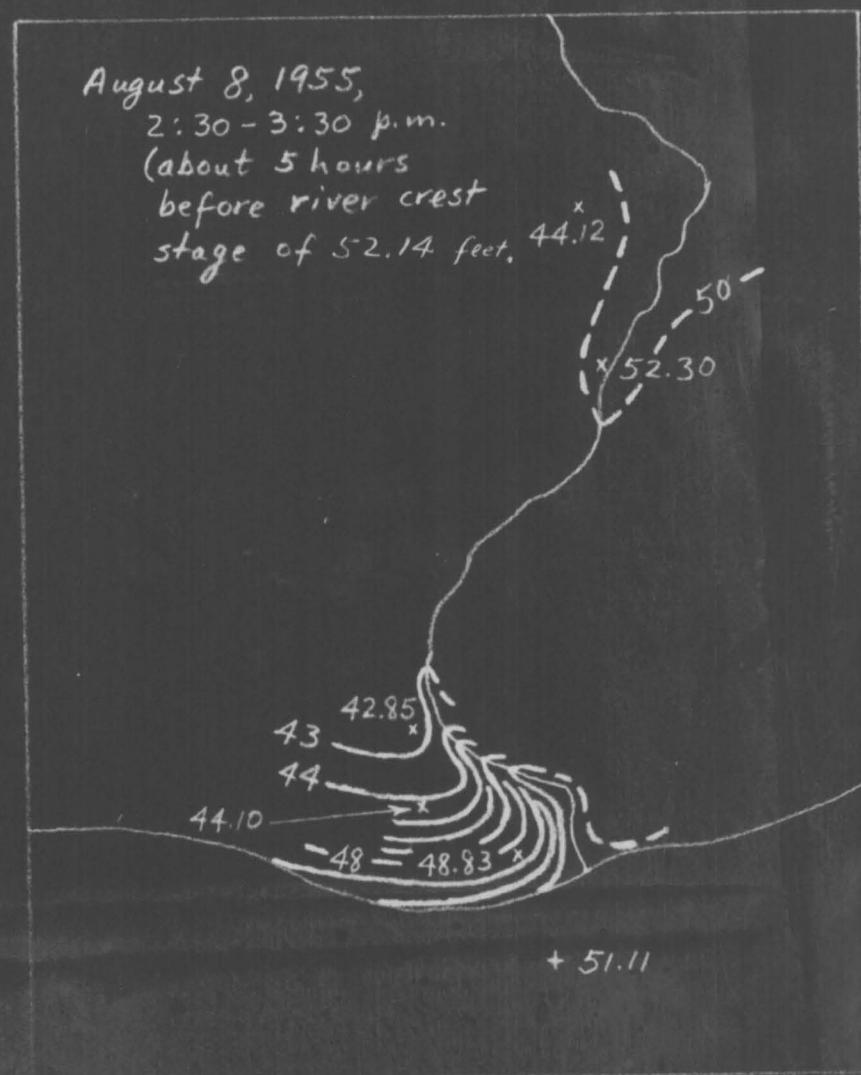 August 8, 1955,
2:30 - 3:30 p.m.
(about 5 hours
before river crest
stage of 52.14 feet.
44.12
50
52.30
42.85
43
44
44.10
48
48.83
+ 51.11